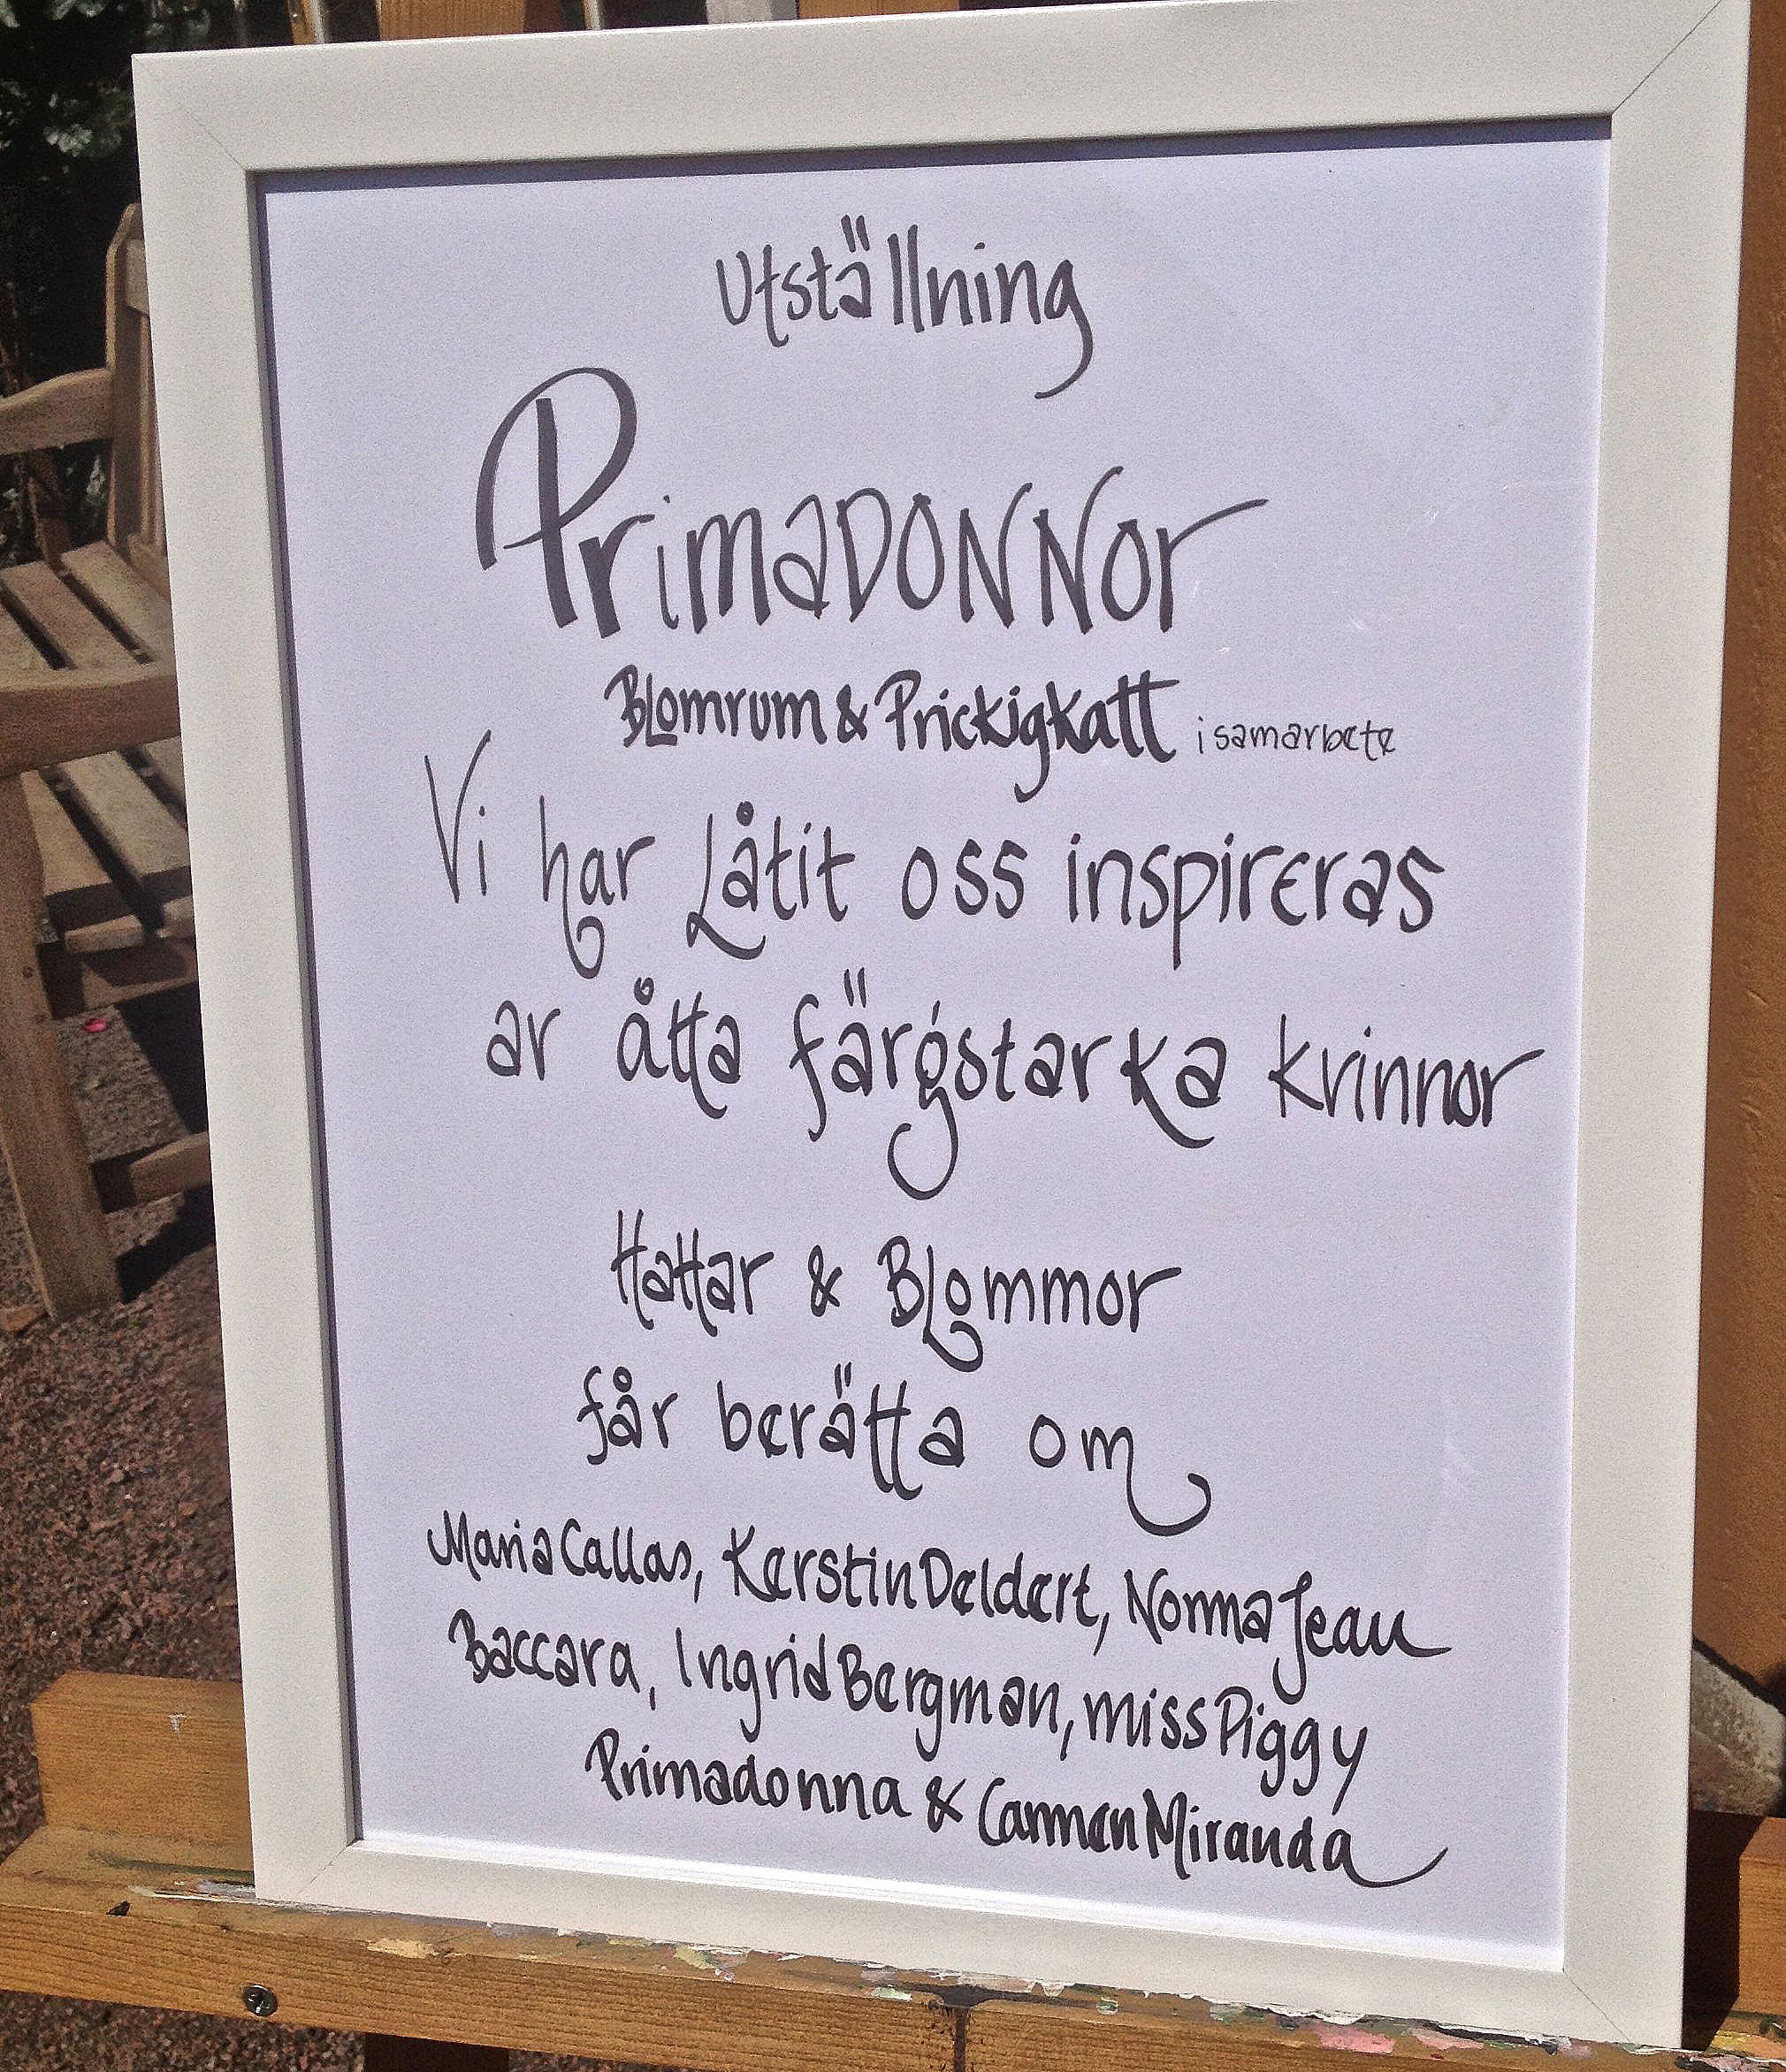 Utställning
Primadonnor
Blomrum & Prickigkatt i samarbete
Vi har Låtit oss inspireras
av åtta färgstarka kvinnor
Hattar & Blommor
får berätta om
Maria Callas, Kerstin Deldert, Norma Jean
Baccara, Ingrid Bergman, miss Piggy
Primadonna & Carmen Miranda